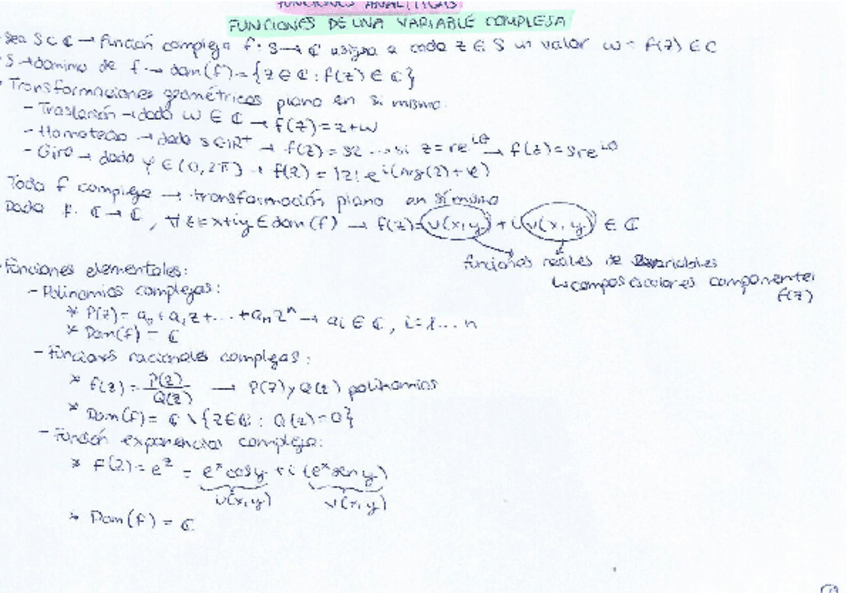 FUNCIONES ANALÍTICAS
FUNCIONES DE UNA VARIABLE COMPLEJA
Sea S⊂ℂ → función compleja f: S→ℂ asigna a cada z∈S un valor w = f(z) ∈ ℂ
S→dominio de f → dom(f) = {z∈ℂ : f(z) ∈ ℂ}
Transformaciones geométricas plano en si mismo.
- Traslación → dado w ∈ ℂ → f(z) = z+w
- Homotecia → dado s∈ℝ⁺ → f(z) = sz ... si z = re^{iθ} → f(z) = sre^{iθ}
- Giro → dado φ ∈ (0,2π) → f(z) = |z| e^{i(Arg(z)+φ)}
Toda f compleja → transformación plano en sí mismo
Dada f: ℂ→ℂ, ∀z=x+iy ∈ dom(f) → f(z) = u(x,y) + i v(x,y) ∈ ℂ
funciones reales de 2 variables
↳ campos escalares componentes
f(z)
Funciones elementales:
- Polinomios complejos:
* P(z) = a₀+a₁z+...+aₙzⁿ → ai ∈ ℂ, i=1...n
* Dom(f) = ℂ
- Funciones racionales complejas:
* f(z) = P(z)/Q(z) → P(z) y Q(z) polinomios
* Dom(f) = ℂ \ {z∈ℂ : Q(z)=0}
- Función exponencial compleja:
* f(z) = e^z = e^x cos y + i (e^x sen y)
u(x,y) v(x,y)
* Dom(f) = ℂ